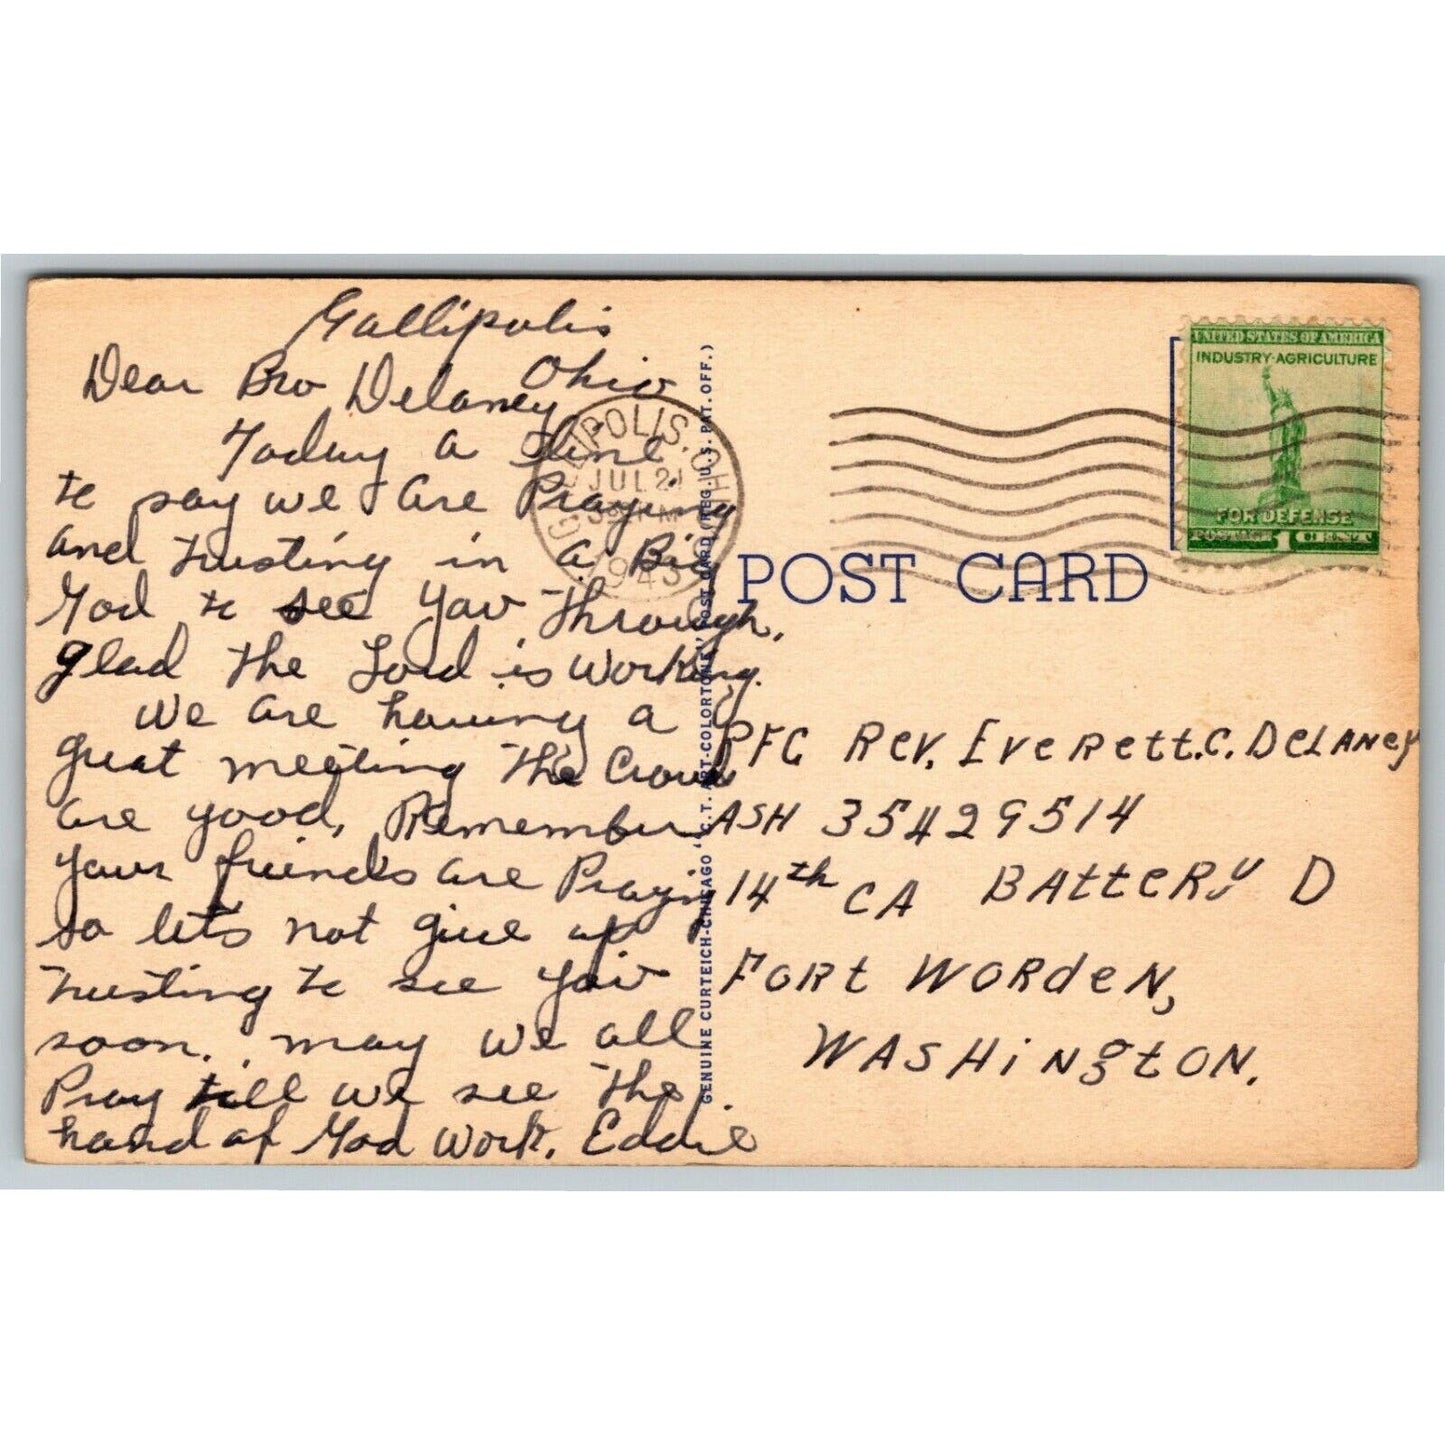 Gallipolis
Ohio
Dear Bro Delaney
Today a line
to say we are Praying
and trusting in a Big
God to see you Through.
glad the Lord is working.
We are having a
great meeting The Crowd
are good, Remember
your friends are Praying
so lets not give up
trusting to see you
soon. may we all
Pray till we see The
hand of God work. Eddie
GALLIPOLIS. OHIO
JUL 21
1943
GENUINE CURTEICH-CHICAGO "C.T. ART-COLORTONE" POST CARD (REG. U.S. PAT. OFF.)
UNITED STATES OF AMERICA
INDUSTRY-AGRICULTURE
FOR DEFENSE
POSTAGE 1 CENT
POST CARD
PFC Rev. Everett.C. DeLaney
ASH 35429514
14th CA Battery D
Fort Worden,
Washington.